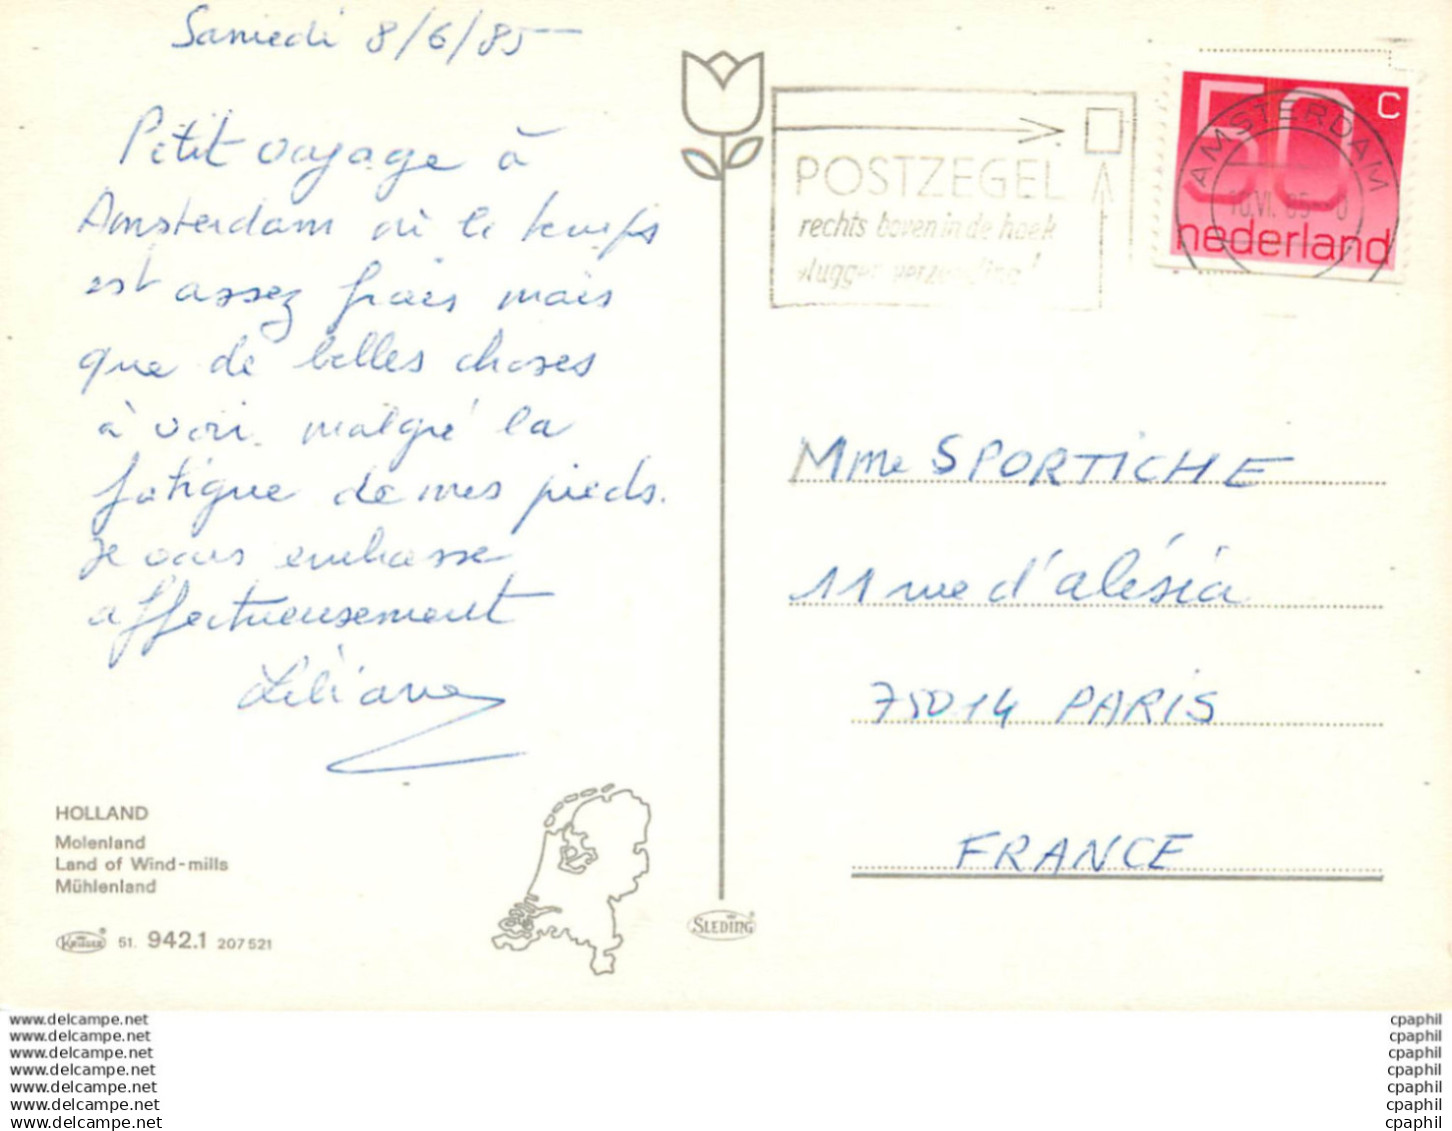 Samedi 8/6/85
Petit voyage à
Amsterdam où le temps
est assez frais mais
que de belles choses
à voir malgré la
fatigue de mes pieds.
Je vous embrasse
affectueusement
Liliane
HOLLAND
Molenland
Land of Wind-mills
Mühlenland
KRÜGER 51. 942.1 207521
SLEDING
POSTZEGEL
rechts boven in de hoek
vlugger verzending!
50 c
nederland
AMSTERDAM
Mme SPORTICHE
11 rue d'alésia
75014 PARIS
FRANCE
www.delcampe.net
www.delcampe.net
www.delcampe.net
www.delcampe.net
www.delcampe.net
www.delcampe.net
www.delcampe.net
cpaphil
cpaphil
cpaphil
cpaphil
cpaphil
cpaphil
cpaphil